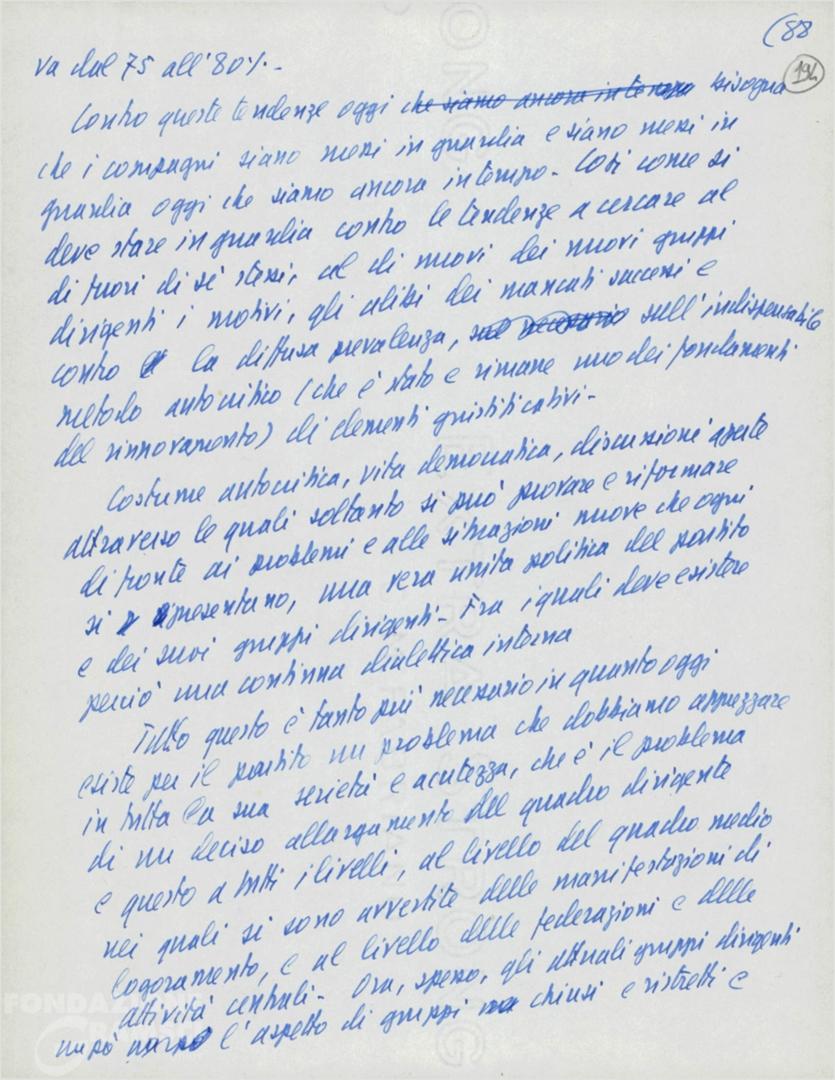 (88
194
va dal 75 all'80%.-
Contro queste tendenze oggi che siamo ancora in tempo bisogna
che i compagni siano messi in guardia e siano messi in
guardia oggi che siamo ancora in tempo - Così come si
deve stare in guardia contro le tendenze a cercare al
di fuori di sé stessi, al di nuovi dei nuovi gruppi
dirigenti i motivi, gli alibi dei mancati successi e
contro la diffusa prevalenza, sul necessario sull'indispensabile
metodo autocritico (che è stato e rimane uno dei fondamenti
del rinnovamento) di elementi giustificativi -
Costume autocritica, vita democratica, discussioni aperte
attraverso le quali soltanto si può provare e riformare
di fronte ai problemi e alle situazioni nuove che ogni
si presentano, una vera unità politica del partito
e dei suoi gruppi dirigenti - Fra i quali deve esistere
perciò una continua dialettica interna
Tutto questo è tanto più necessario in quanto oggi
esiste per il partito un problema che dobbiamo apprezzare
in tutta la sua serietà e acutezza, che è il problema
di un deciso allargamento del quadro dirigente
e questo a tutti i livelli, al livello del quadro medio
nei quali si sono avvertite delle manifestazioni di
logoramento, e al livello delle federazioni e delle
attività centrali - Ora, spesso, gli attuali gruppi dirigenti
un pò l'aspetto di gruppi chiusi e ristretti e
FONDAZIONE